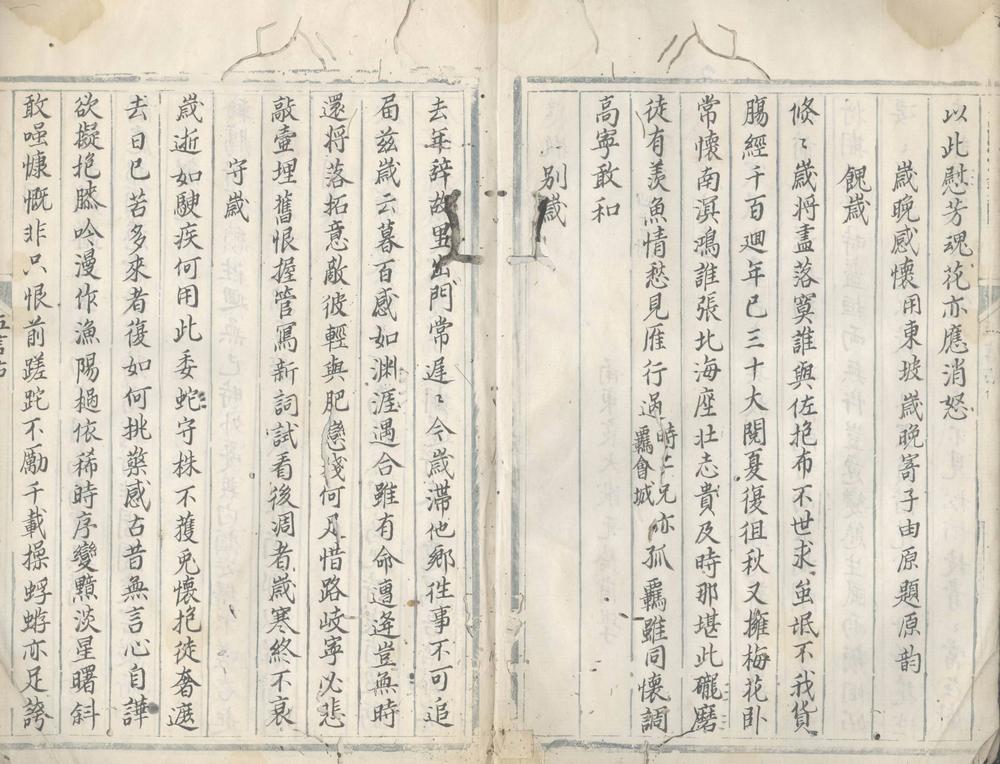 以此慰芳魂花亦應消怒
歲晚感懷用東坡歲晚寄子由原題原韵
餽歲
倏〻歲將盡落寞誰與佐抱布不世求蚩氓不我貨
腸經千百廻年已三十大閱夏復徂秋又擁梅花卧
常懷南溟鴻誰張北海座壮志貴及時那堪此礲磨
徒有羨魚情愁見雁行過時二兄羈會城亦孤羈雖同懷調
高寧敢和
別歲
去年辞故里出門常遲〻今歲滯他鄉徃事不可追
届兹歲云暮百感如淵涯遇合雖有命遭逄豈無時
還将落拓意敵彼輕與肥戀棧何乃惜路岐寧必悲
敲壷埋舊恨握管寫新詞試看後凋者歲寒終不衰
守歲
歲逝如駛疾何用此委蛇守株不獲兎懷抱徒奢遮
去日已苦多來者復如何挑藥感古昔無言心自譁
欲擬抱膝吟漫作漁陽撾依稀時序變黯淡星曙斜
敢嗤慷慨非只恨前蹉跎不勵千載操蜉蝣亦足誇
五言古